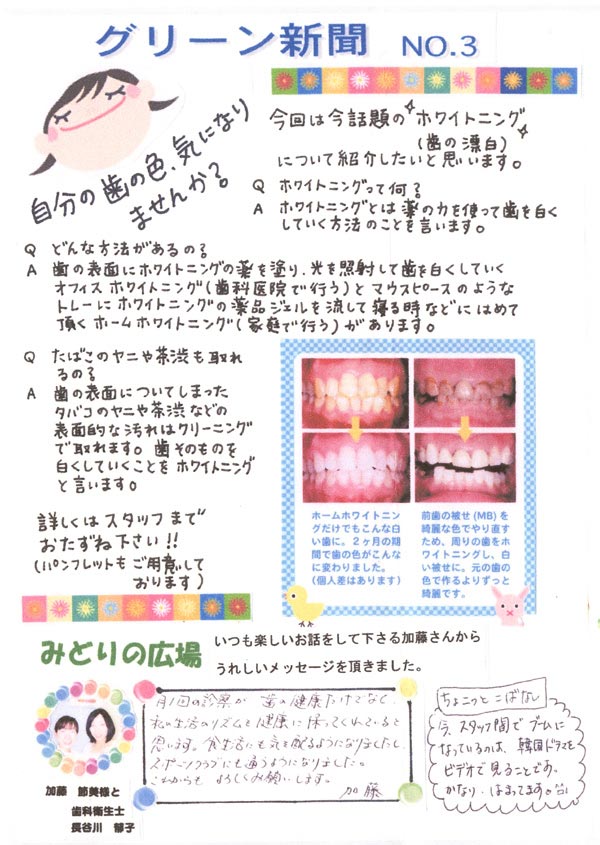 グリーン新聞 NO.3
自分の歯の色、気になり
ませんか?
今回は今話題の ホワイトニング
(歯の漂白)
について紹介したいと思います。
Q ホワイトニングって何?
A ホワイトニングとは薬の力を使って歯を白く
していく方法のことを言います。
Q どんな方法があるの?
A 歯の表面にホワイトニングの薬を塗り、光を照射して歯を白くしていく
オフィスホワイトニング(歯科医院で行う)とマウスピースのような
トレーにホワイトニングの薬品ジェルを流して寝る時などにはめて
頂くホームホワイトニング(家庭で行う)があります。
Q たばこのヤニや茶渋も取れ
るの?
A 歯の表面についてしまった
タバコのヤニや茶渋などの
表面的な汚れはクリーニング
で取れます。歯そのものを
白くしていくことをホワイトニング
と言います。
詳しくはスタッフまで
おたずね下さい!!
(パンフレットもご用意して
おります)
ホームホワイトニン
グだけでもこんな白
い歯に。2ヶ月の期
間で歯の色がこんな
に変わりました。
(個人差はあります)
前歯の被せ(MB)を
綺麗な色でやり直す
ため、周りの歯をホ
ワイトニングし、白
い被せに。元の歯の
色で作るよりずっと
綺麗です。
みどりの広場
いつも楽しいお話をして下さる加藤さんから
うれしいメッセージを頂きました。
月1回の診察が 歯の健康だけでなく、
私の生活のリズムと健康に保ってくれていると
思います。食生活にも気を配るようになりましたし、
スポーツクラブにも通うようになりました。
これからも よろしくお願いします。
加藤
加藤 節美様と
歯科衛生士
長谷川 郁子
ちょこっと こばなし
今、スタッフ間でブームに
なっているのは、韓国ドラマを
ビデオで見ることです。
かなり、はまってます。